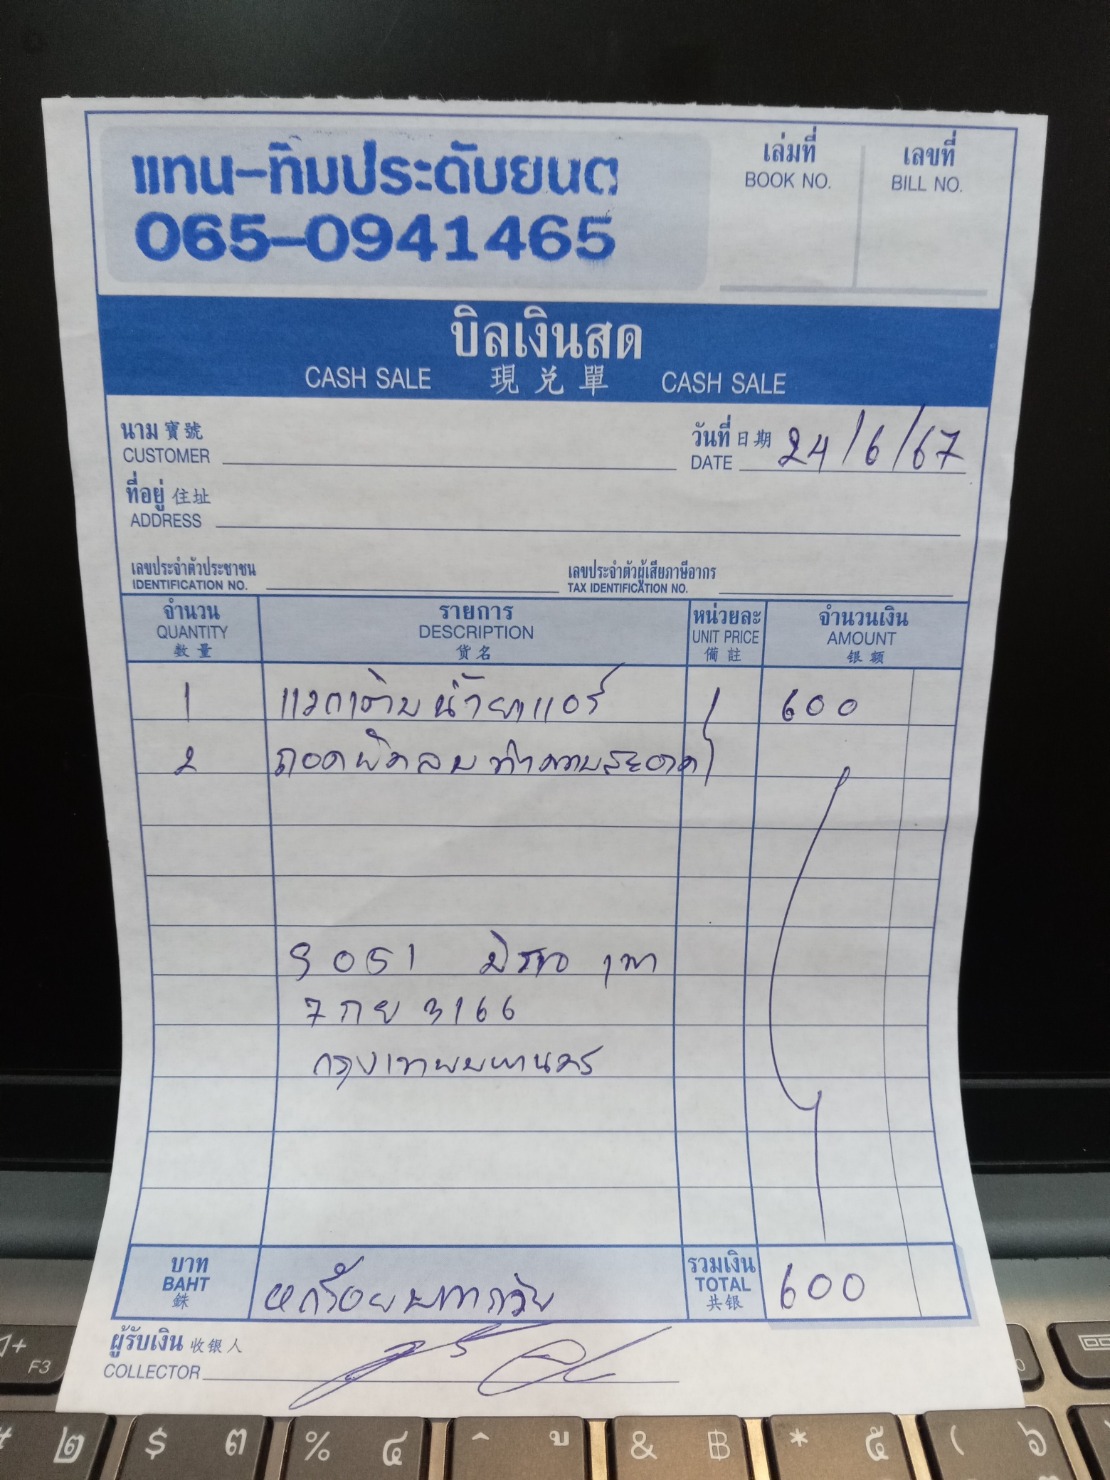 แทน-ทิมประดับยนต์
065-0941465
เล่มที่
BOOK NO.
เลขที่
BILL NO.
บิลเงินสด
CASH SALE 現兑單 CASH SALE
นาม 寶號
CUSTOMER
วันที่ 日期
DATE
24/6/67
ที่อยู่ 住址
ADDRESS
เลขประจำตัวประชาชน
IDENTIFICATION NO.
เลขประจำตัวผู้เสียภาษีอากร
TAX IDENTIFICATION NO.
จำนวน
QUANTITY
数量
รายการ
DESCRIPTION
貨名
หน่วยละ
UNIT PRICE
備註
จำนวนเงิน
AMOUNT
银额
1 น้ำยาแอร์ 600
2 ถอดพัดลมทำความสะอาด
7 กย 3166
กรุงเทพมหานคร
บาท
BAHT
銖
รวมเงิน
TOTAL
共银
600
ผู้รับเงิน 收银人
COLLECTOR
F3
๒
$ ๓
% ๔
^ ู
& ฿
* ๕
( ๖